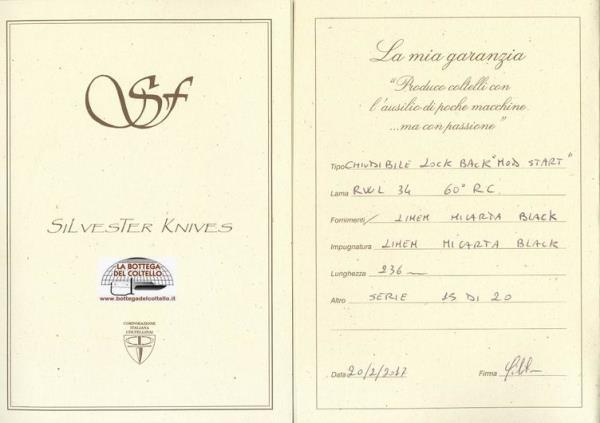 Sf
SiLvesTer Knives
LA BOTTEGA
DEL COLTELLO
www.bottegadelcoltello.it
CORPORAZIONE
ITALIANA
COLTELLINAI
La mia garanzia
"Produco coltelli con
l'ausilio di poche macchine
...ma con passione"
Tipo CHIUDIBILE LOCK BACK "MOD START"
Lama RWL 34 60° RC.
Fornimenti / LINEN MICARTA BLACK
Impugnatura LINEN MICARTA BLACK
Lunghezza 236
Altro SERIE 15 DI 20
Data 20/2/2017 Firma